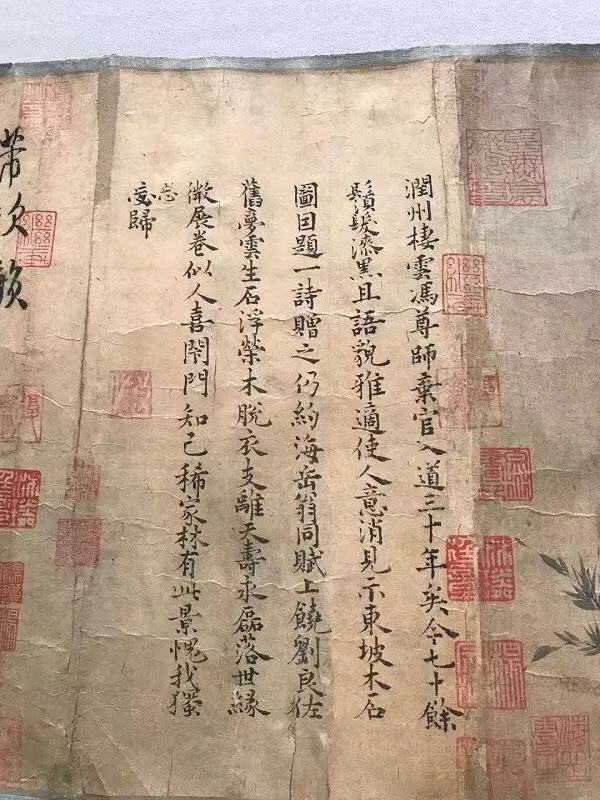 潤州棲雲馮尊師棄官入道三十年矣今七十餘
鬚髮漆黑且語貌雅適使人意消見示東坡木石
圖因題一詩贈之仍約海岳翁同賦上饒劉良佐
舊夢雲生石浮榮木脫衣支離天壽永磊落世緣
微展卷似人喜閇門知己稀家林有此景愧我獨
忘歸
芾次韻